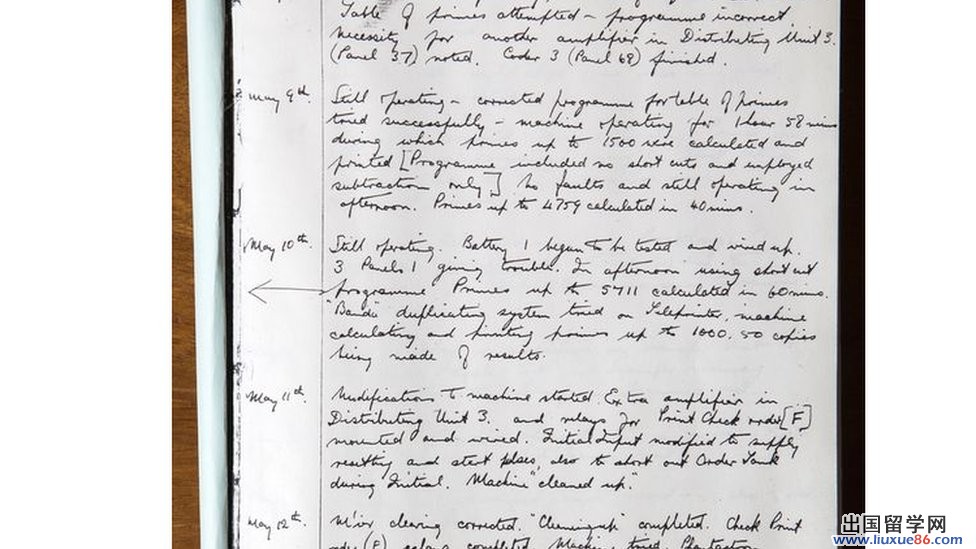 Table of primes attempted – programme incorrect
necessity for another amplifier in Distributing Unit 3.
(Panel 37) noted. Coder 3 (Panel 68) finished.
May 9th. Still operating – corrected programme for table of primes
tried successfully – machine operating for 1 hour 58 mins
during which primes up to 1500 were calculated and
printed [Programme included no short cuts and employed
subtraction only] No faults and still operating in
afternoon. Primes up to 4759 calculated in 40 mins.
May 10th. Still operating. Battery 1 began to be tested and wired up.
3 Panels 1 giving trouble. In afternoon using short cut
programme Primes up to 5711 calculated in 60 mins.
"Banda" duplicating system tried on Teleprinter, machine
calculating and printing primes up to 1000. 50 copies
being made of results.
May 11th. Modifications to machine started. Extra amplifier in
Distributing Unit 3. and relays for Print Check order [F]
mounted and wired. Initial Input modified to supply
resetting and start pulses, also to short out Order Tank
during Initial. Machine "cleaned up."
May 12th. clearing corrected. completed. Check Print
(F) completed. Machine tried.
出国留学网
www.liuxue86.com